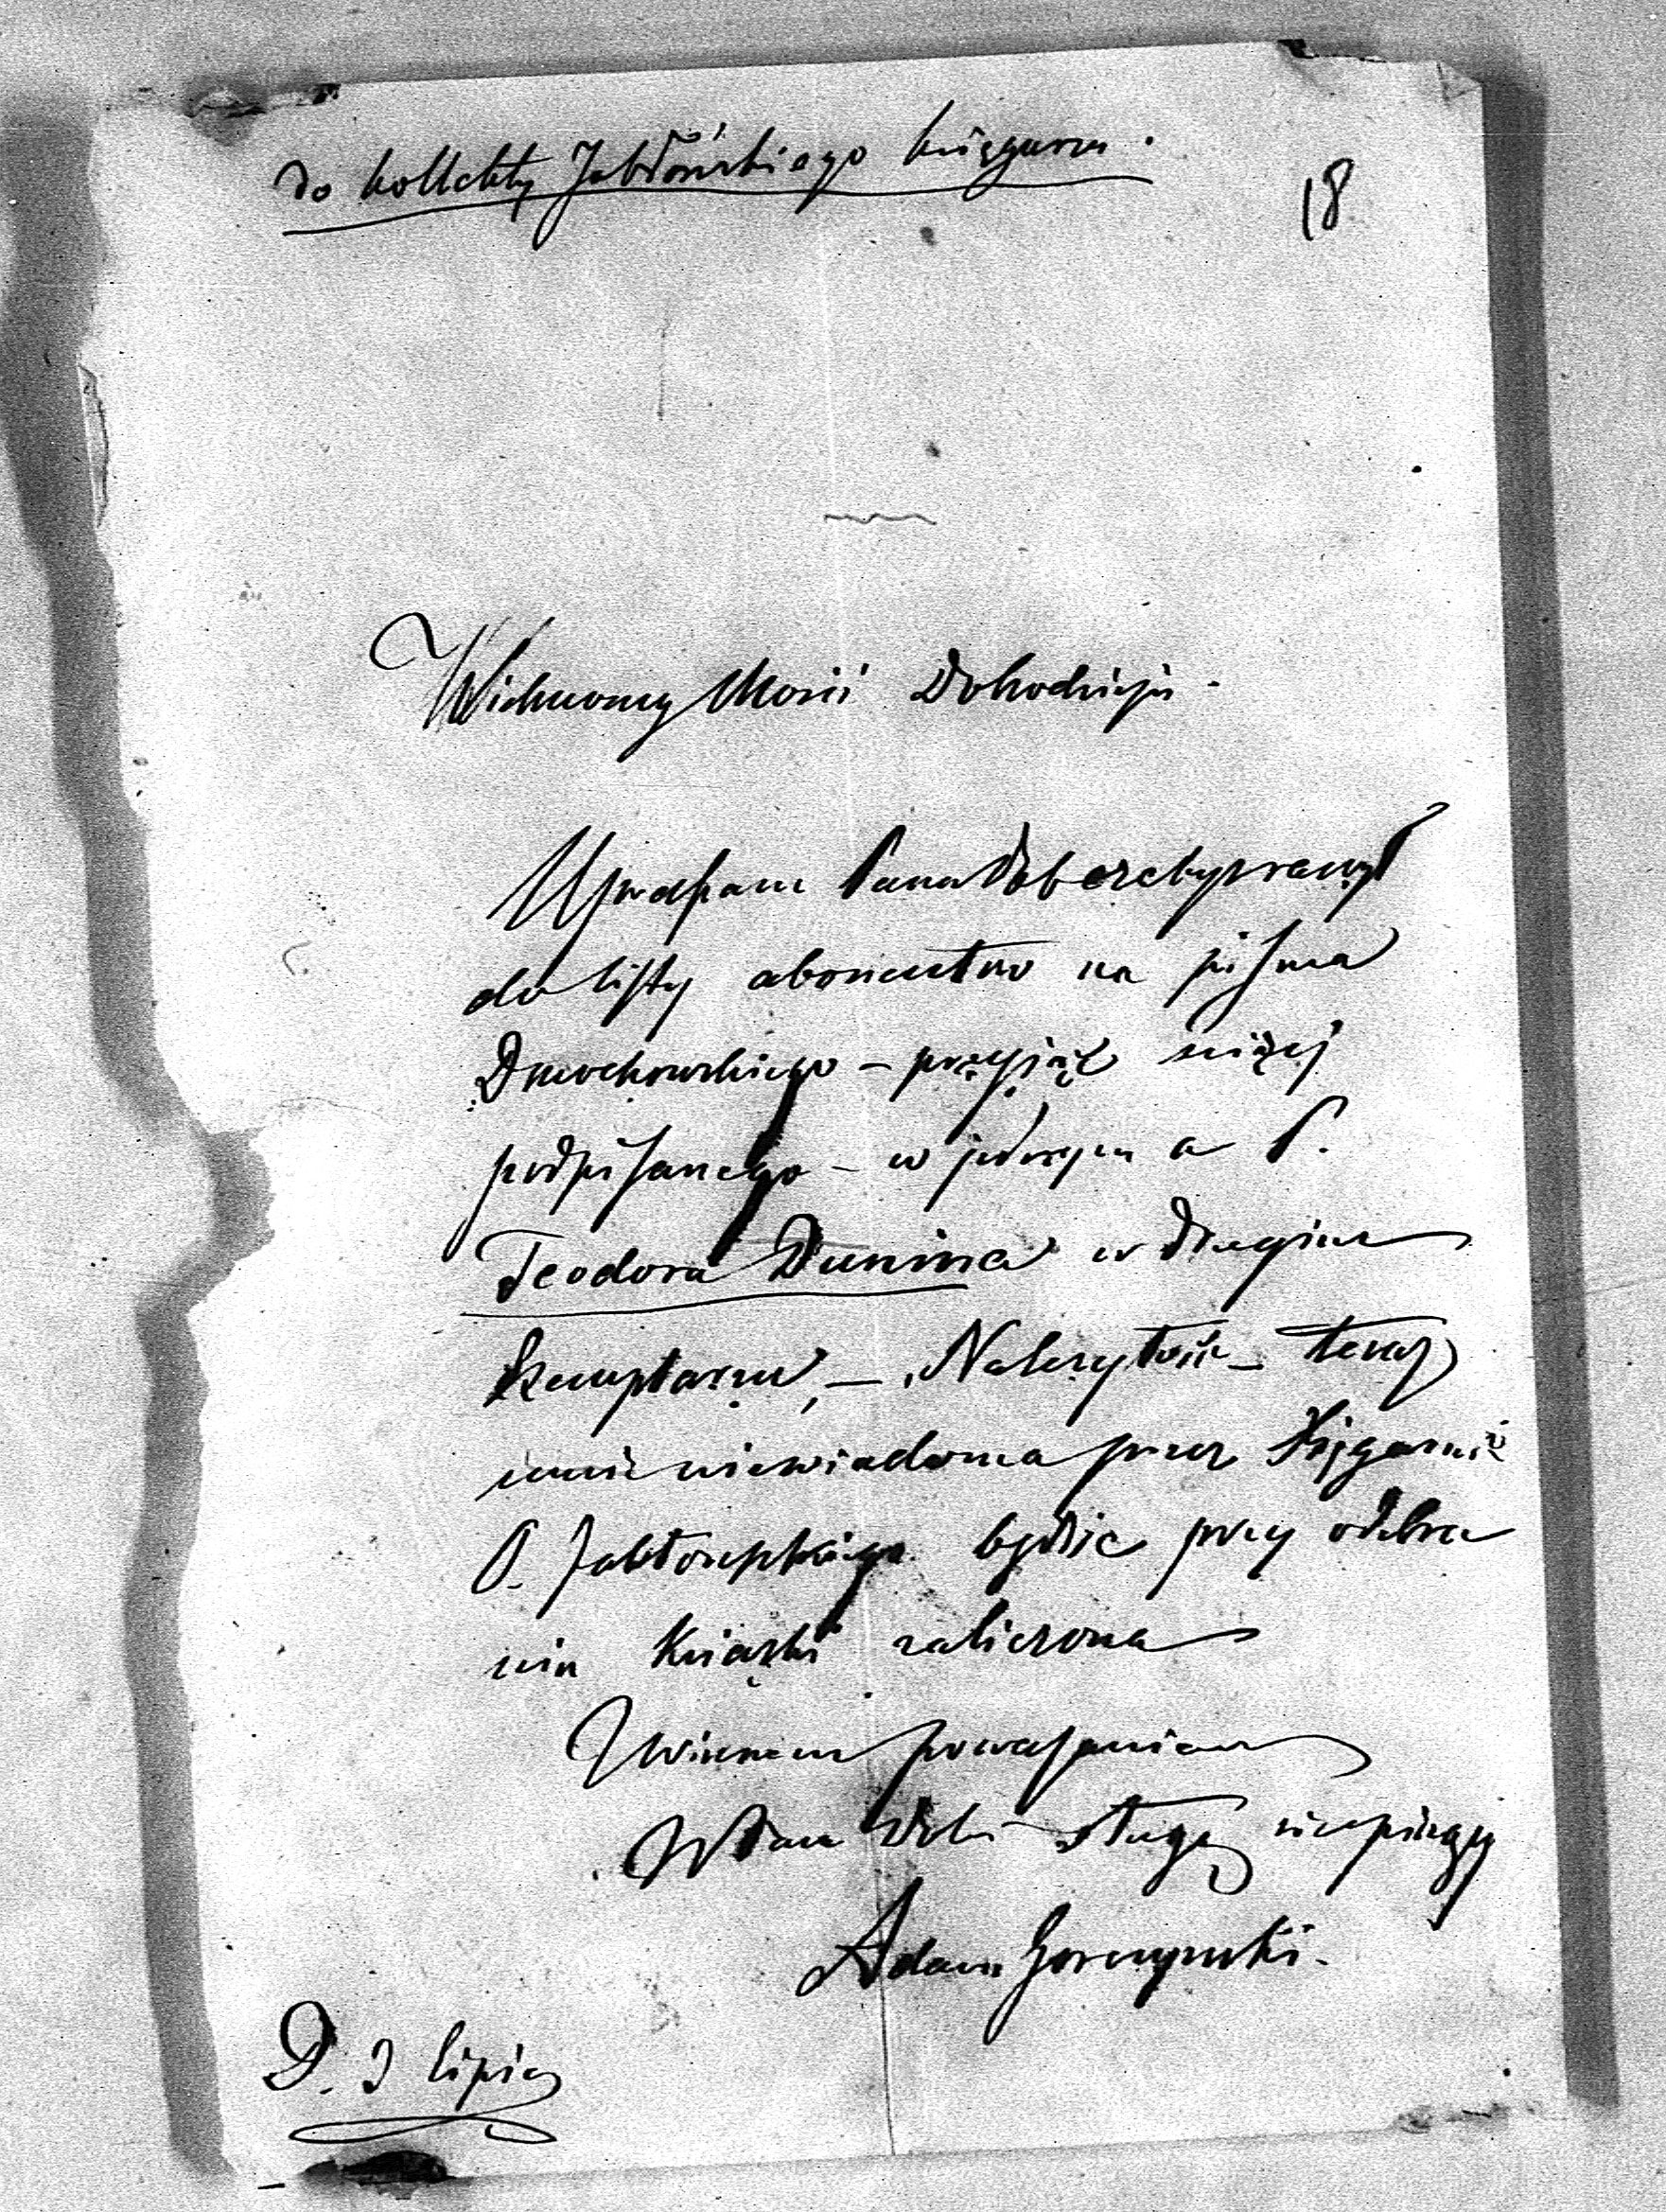 do kollekty Jabłońskiego księgarza.
18
Wielmożny Mości Dobrodzieju.
Upraszam Pana Dob. ażeby raczył
do listy abonentów na pisma
Dmochowskiego – przyjąć niżej
podpisanego – w jednym a P.
Teodora Dunina w drugim
Exemplarzu, – Należytość – teraz
mnie niewiadoma przez Księgarnię
P. Jabłońskiego będzie przy odebra
niu Książki zaliczona
Z winnem poważaniem
WPana Dob. sługą
Adam Gorczyński.
D. 2 lipca